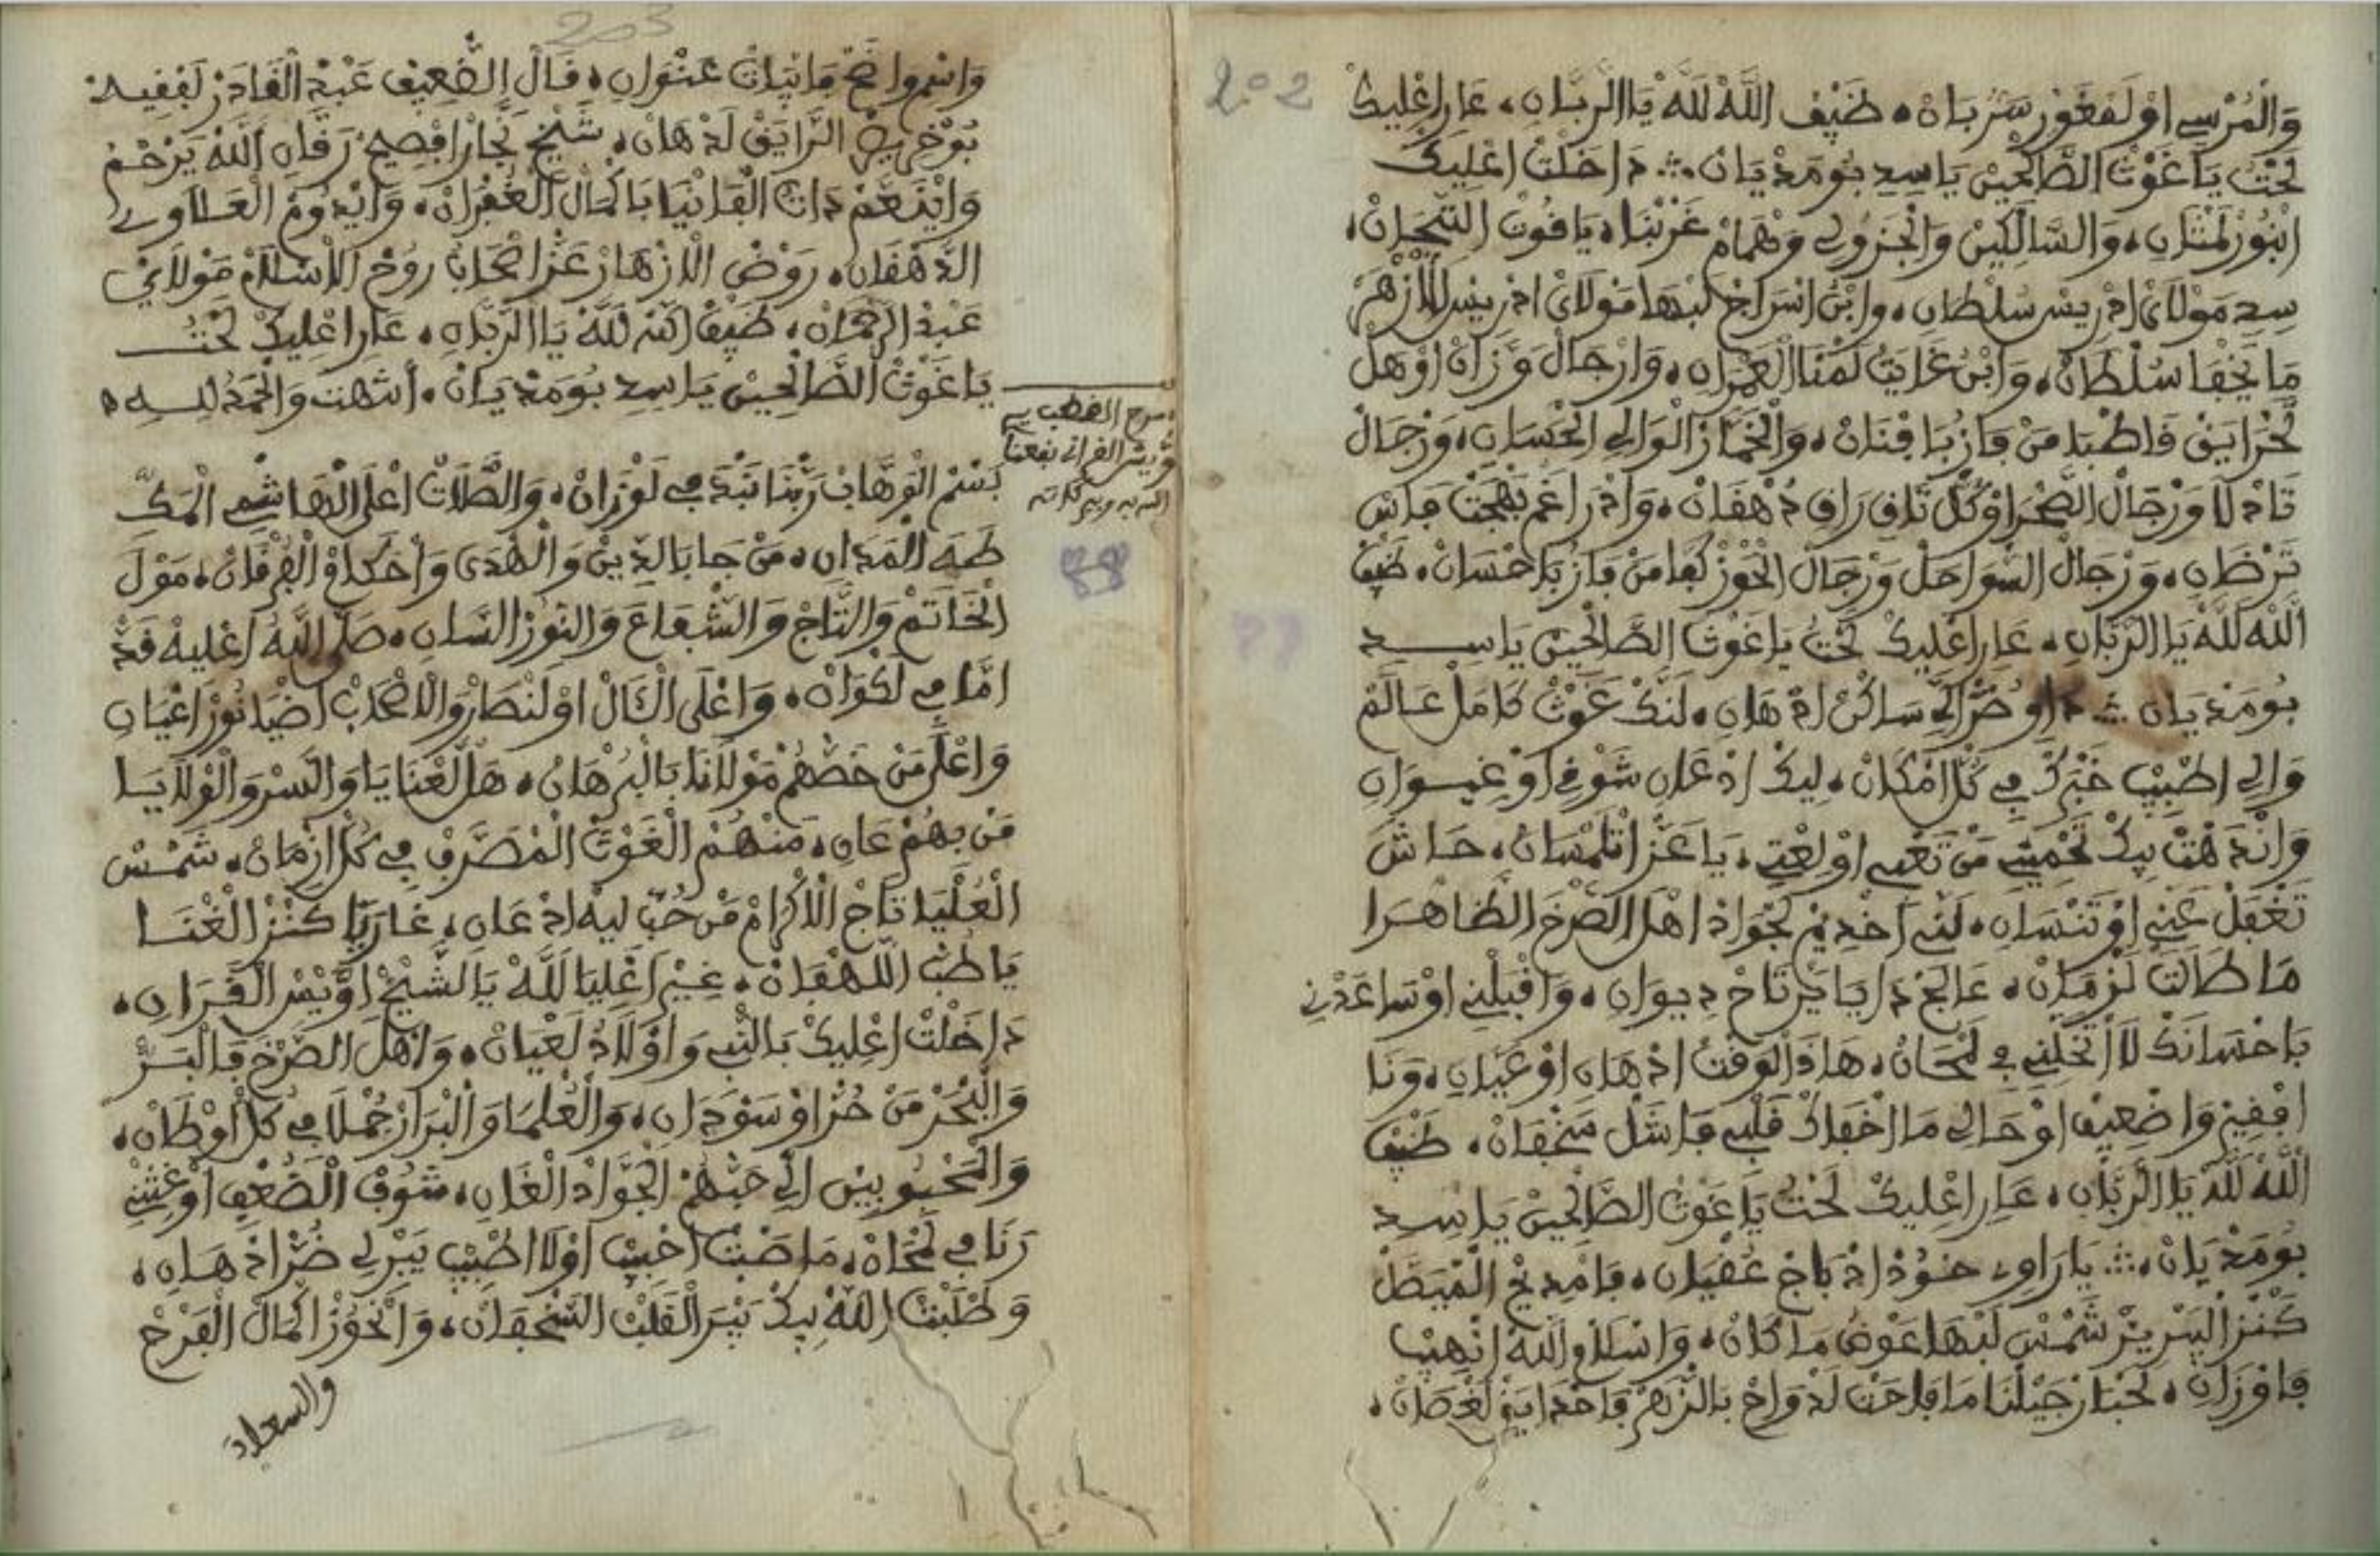 202
وَالْمُرْسِي اوْلَفغَوْر سَرْبَانْ، ضَيْف اللَّهْ للَّهْ يَا الرَّبَّانِ، عَارَاعْلِيكْ
لحْتُ يَا غَوْثْ الصَّالْحِينْ يَا سِيدِ بُومَدْيَانْ ؞ دَاخَلْتْ اعْلِيكْ
ابْنُورْ لَمْتَانِ، وَالسَّالْكِينْ وَالْجَزُولِي وَهْمَامْ غَرْبْنَا، يَاقُوتْ التِّيجَانْ،
سِيدِ مَوْلَايْ ادْرِيسْ سُلْطَانِ، وَابْنْ اسْرَاجْ لَبْهَا مَوْلَايْ ادْرِيسْ لَلْأَزْهَرْ
مَا يَخْفَا سُلْطَانْ، وَابْنْ غَابَتْ لَمْنَا الْعَمْرَانِ، وَارْجَالْ وَزَّانْ اوْهَلْ
لَخْزَايَنْ فَاطْبَا مَنْ فَازْ بَافْنَانْ، وَالْخَمَّارْ الْوَالِي الْحَسَّانِ، وَرْجَالْ
تَادْلَا وَرْجَالْ الصَّحْرَا وْكُلْ تَافِ رَاقِ دْهْقَانْ، وَادْرَاغَمْ بَهْجَتْ فَاسْ
تَرْضَانِ، وَرْجَالْ السَّوَاحَلْ وَرْجَالْ الْحَوْزْ كُفَا مَنْ فَازْ بَاحْسَانْ، ضَيْف
اللَّهْ للَّهْ يَا الرَّبَّانِ، عَارَاعْلِيكْ لحْتُ يَا غَوْثْ الصَّالْحِينْ يَا سِيدِ
بُومَدْيَانْ ؞ دَاوِ ضُرّ الِّي سَاكَنْ ادْهَانِ، لَنَّكْ غَوْثْ كَامَلْ عَالَمْ
وَالِي اطْبِيبْ خَبْرَكْ فِي كُلّ امْكَانْ، لِيكْ ادْعَانِ شَوْقِي اوْغِيوَانِ
وَانْدَهْتْ بِيكْ تَحْمِينِي مَنْ تَعْبِي اوْلعْتِي، يَا عَزّ اتْلَمْسَانْ، حَاشَ
تَغْفَلْ عَنِّي اوْتَنْسَانِ، لَنِّي اخْدِيمْ لَجْوَادْ اهْلْ الصَّرْخَ الظَّاهْرَا
مَا طَالَتْ لَزْمَانْ، عَالَجْ دَايَا يَرْتَاحْ دِيوَانِ، وَاقْبَلْنِي اوْسَاعَدْنِي
بَاحْسَانَكْ لَا اتْخَلِّينِي فِي لَمْحَانْ، هَاذَ الْوَقْتْ ادْهَانِ اوْعَيَّانِ، وَنَا
افْقِيرْ وَاضْعِيفْ اوْحَالِي مَا اخْفَاكْ قَلْبِي فَاشَلْ سَخْفَانْ، ضَيْف
اللَّهْ للَّهْ يَا الرَّبَّانِ، عَارَاعْلِيكْ لحْتُ يَا غَوْثْ الصَّالْحِينْ يَا سِيدِ
بُومَدْيَانْ، ؞ يَا رَاوِي خُوذْ ادْبَاجْ عَقْيَانِ، فَامْدِيحْ الْمِيصَلْ
كَنْزْ السِّرْ شَمْسْ لَبْهَا عَوْضْ مَا كَانْ، وَاسْلَامْ اللَّهْ انْهِيبْ
فَاوْزَانِ، لَحْبَارْ جِيلْنَا مَا فَاحَتْ لَدْوَاحْ بَالزَّهْرْ فَاحْدَايَقْ لَغْصَانْ،
203
وَاسْمِي وَاضَحْ مَا نْبَاتْ عَنْوَانِ، قَالْ الضَّعِيفْ عَبْدْ الْقَادَرْ لَفْقِيهْ
بُوخْرِيصْ الرَّايَقْ لَدْهَانْ، شَيْخْ نَجَّارْ افْصِيحْ رَقَّانِ اللَّهْ يَرْحَمْ
وَايْنَعَّمْ دَاتْ الْفَانْيَا بَاكْمَالْ الْغُفْرَانْ، وَايْدُومْ الْعَلَاوِي
الدَّهْقَانِ، رَوْضْ الْازْهَارْ عَزّ اصْحَابْ رُوحْ الْاسْلَامْ مَوْلَايْ
عَبْدْ الرَّحْمَانْ، ضَيْفْ اللَّهْ للَّهْ يَا الرَّبَّانِ، عَارَاعْلِيكْ لحْتُ
يَا غَوْثْ الصَّالْحِينْ يَا سِيدِ بُومَدْيَانْ، أنتهت وَالْحَمْدُ لِلـه
مدح القطب سي
وْيس القراني نفعنا
الله به وببركاته
بَسْمْ الْوَهَّابْ رَبْنَا نَبْدَ فِي لَوْزَانْ، وَالصَّلَاتْ اعْلَى الْهَاشْمِي الْمَكِّ
طَهَ الْمَدَانِ، مَنْ جَا بَالدِّينْ وَالْهُدَى وَاحْكَامْ الْفُرْقَانْ، مَوْلَ
الْخَاتَمْ وَالتَّاجْ وَالشَّعَاعْ وَالنُّورْ السَّانِ، صَلَّى اللَّهْ اعْلِيهْ قَدّ
امَّا فِي لَكْوَانْ، وَاعْلَى الْآلْ اوْلَنْصَارْ وَالَاصْحَابْ اضْيَا نُورْ اعْيَانِ
وَاعْلَى مَنْ خَصَّهُمْ مَوْلَانَا بَالْبُرْهَانْ، هَلْ لَعْنَايَا وَالسَّرْ وَالْوْلَايَـا
مَنْ بِهُمْ عَانِ، مَنْهُمْ الْغَوْثْ الْمْصَرَّفْ فِي كُلّ ازْمَانْ، شَمْسْ
الْعُلْيَا تَاجْ الْاكْرَامْ مَنْ حُبّ لِيهْ ادْعَانِ، غَارَ يَا كَنْزْ الْغْنَـا
يَا طُبّ اللَّهْفَانْ، غِيرْ اعْلِيَا للَّهْ يَا الشَّيْخْ اوْيْسْ الْقَرَانِ،
دَاخَلْتْ اعْلِيكْ بَالنَّبِي وَاوْلَادْ لَعْيَانْ، وَاهْلْ الصَّرْخَ فَالْبَـرّ
وَالْبْحَرْ مَنْ حُرّ اوْسَوْدَانِ، وَالْعُلَمَا وَالْبْرَارْ جُمْلَا فِي كُلّ اوْطَانْ،
وَالْمَحْبُوبِينْ الِي حَبْهُمْ الْجَوَّادْ الْغَانِ، شُوفْ الضُّعْفِ اوْغِتْنِي
رَنَا فِي لَمْحَانْ، مَا صَبْتْ احْبِيبْ اوْلَا اطْبِيبْ يَبْرِي ضُرّ ادْهَانِ،
وَطْلَبْتْ اللَّهْ بِيكْ يَبْرَ الْقَلْبْ السَّخْفَانْ، وَانْحُوزْ اكْمَالْ الْفَرْحْ
والسعدَ